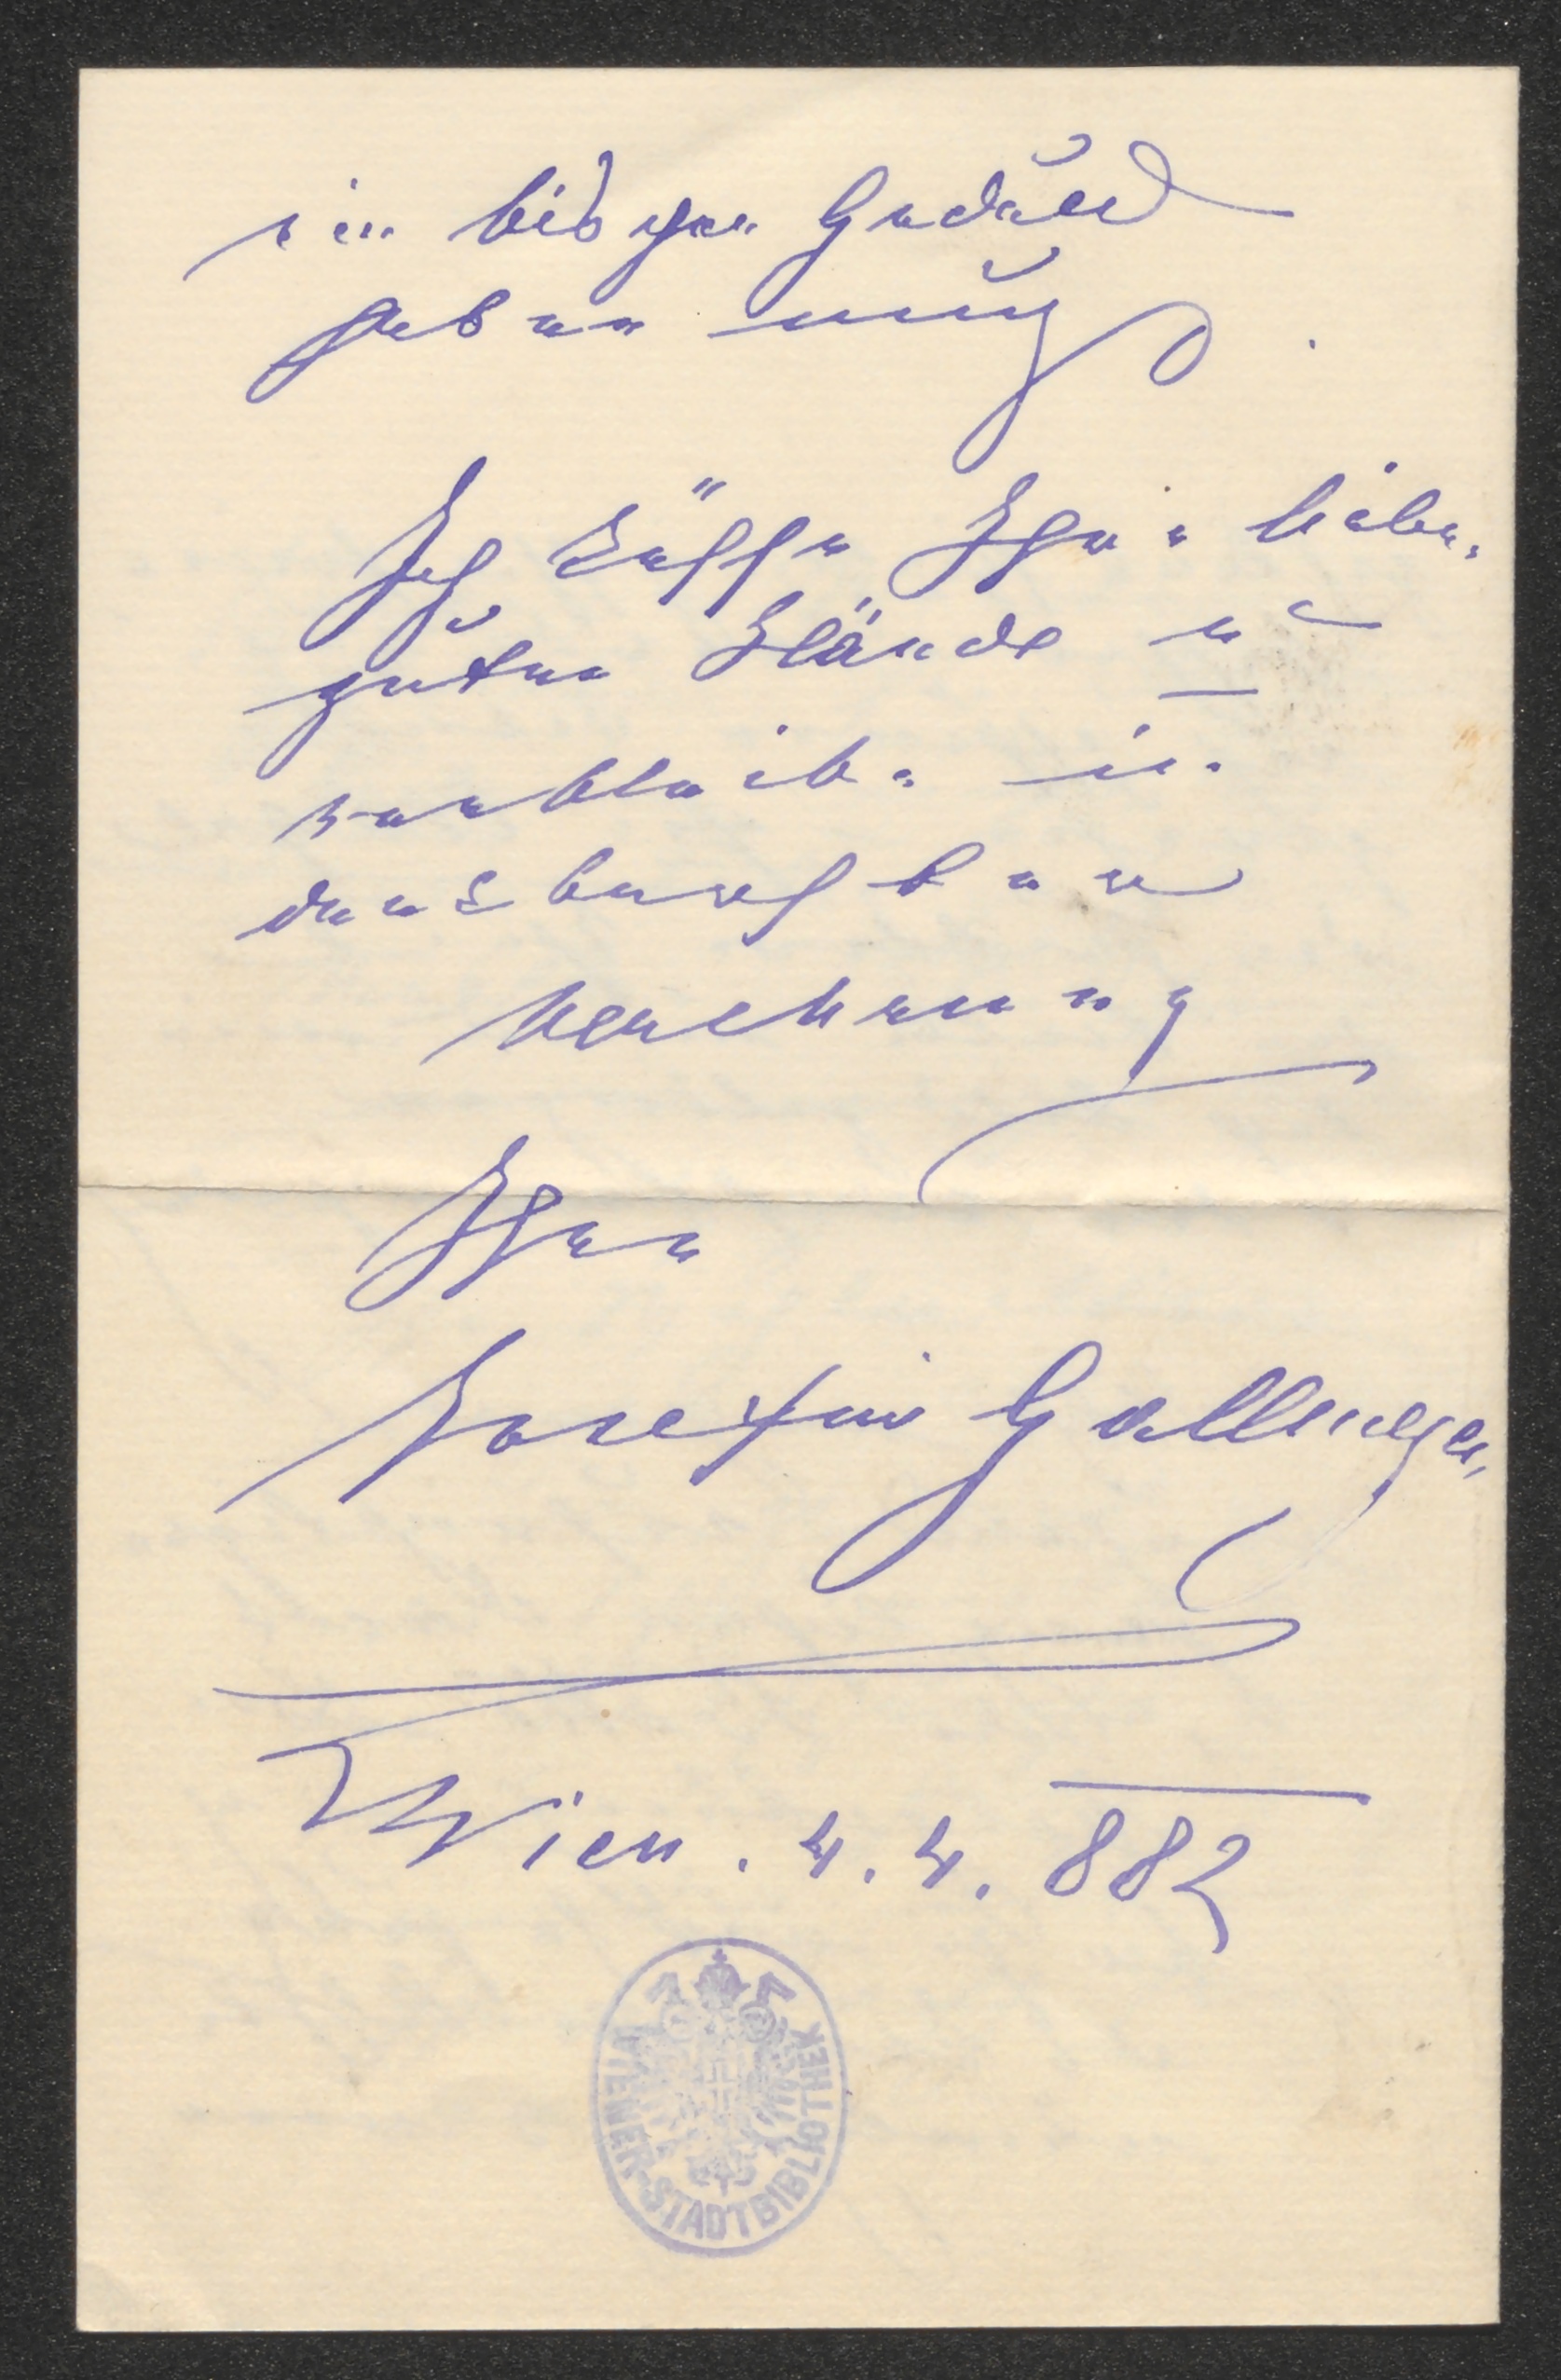 ein bisgen Geduld
haben muß.
Ich küsse Ihre lieben,
guten Hände u
verbleibe in
dankbarster
Verehrung
Ihre
Josefine Gallmeyer
Wien. 4. 4. 882
WIENER-STADTBIBLIOTHEK